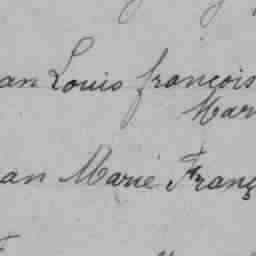 an Louis françois
Mar
an Marie Franç